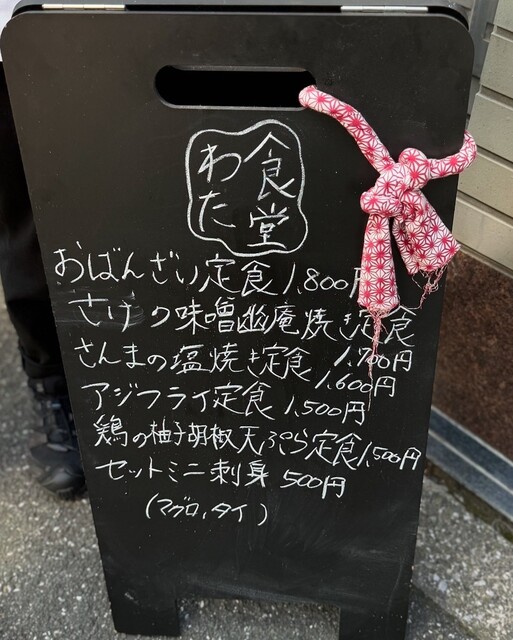 食堂
わた
おばんざい定食 1,800円
さけの味噌幽庵焼き定食
1,700円
さんまの塩焼き定食 1,600円
アジフライ定食 1,500円
鶏の柚子胡椒天ぷら定食 1,500円
セットミニ刺身 500円
(マグロ、タイ)